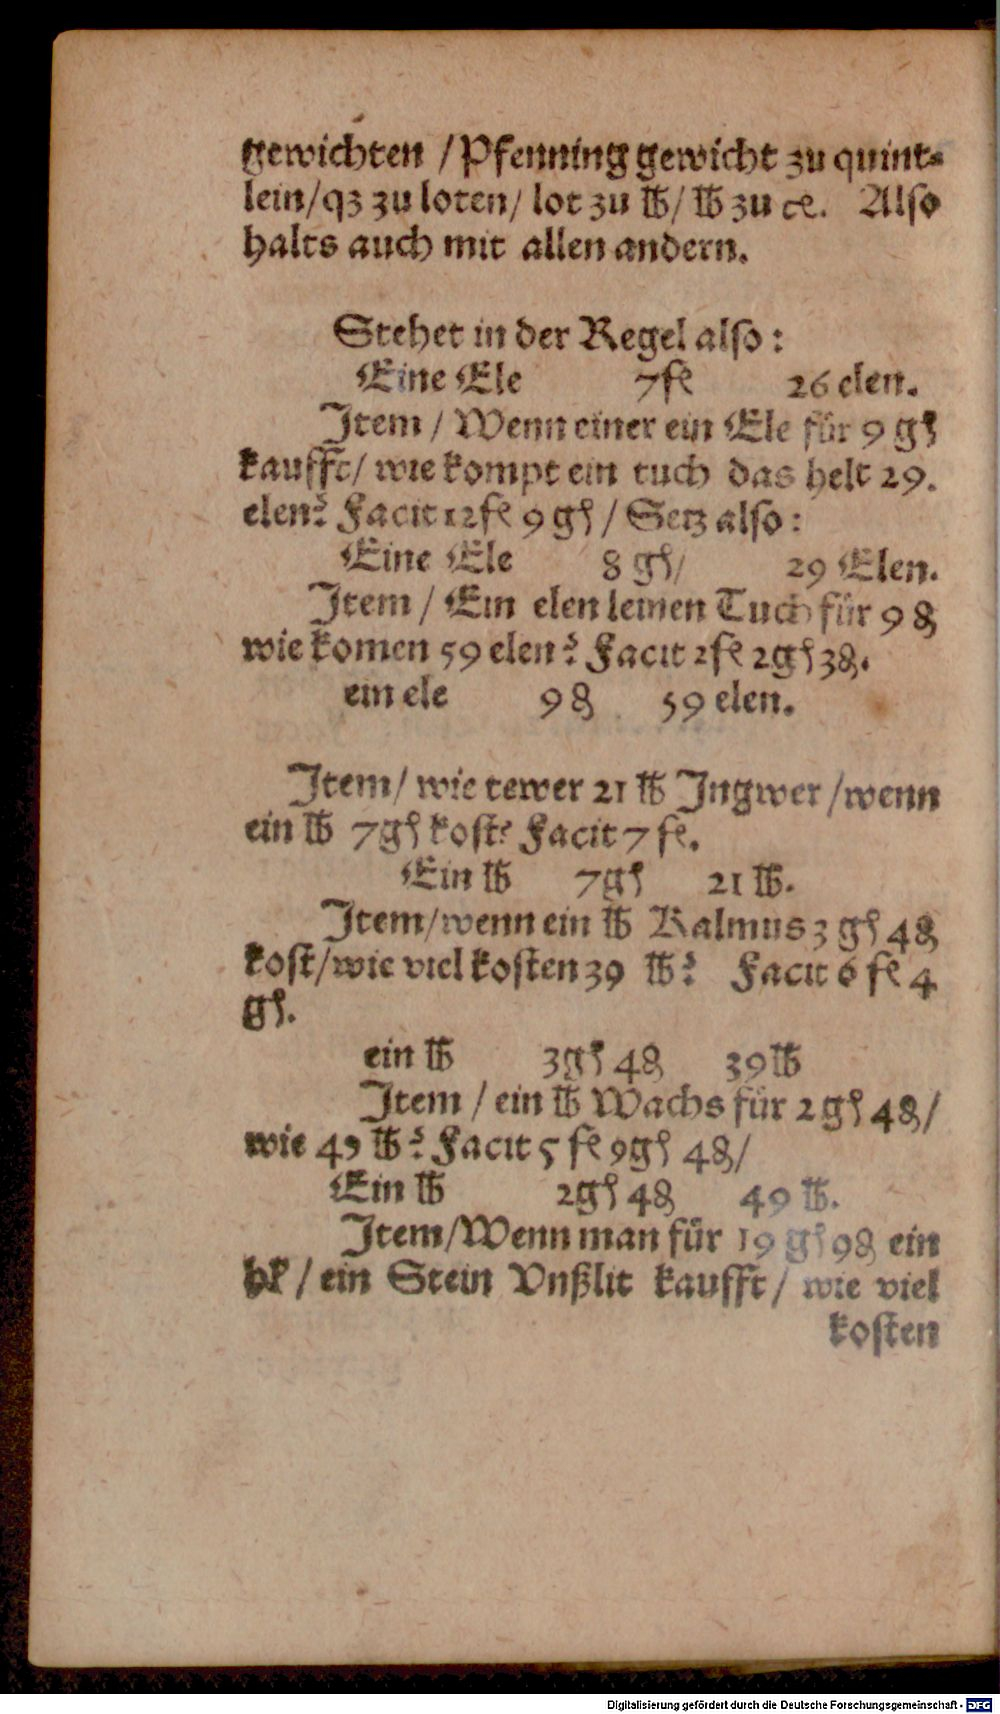 gewichten /Pfenning gewicht zu quint⸗
lein/qʒ zu loten/ lot zu ℔/ ℔ zu ce. Also
halts auch mit allen andern.
Stehet in der Regel also:
Eine Ele 7 fl 26 elen.
Item / Wenn einer ein Ele für 9 gl
kaufft/ wie kompt ein tuch das helt 29.
elen? Facit 12 fl 9 gl / Setz also:
Eine Ele 8 gl/ 29 Elen.
Item / Ein elen leinen Tuch für 9 ₰
wie komen 59 elen? Facit 2 fl 2 gl 3 ₰.
ein ele 9 ₰ 59 elen.
Item/ wie tewer 21 ℔ Ingwer /wenn
ein ℔ 7 gl kost? Facit 7 fl.
Ein ℔ 7 gl 21 ℔.
Item/wenn ein ℔ Kalmus 3 gl 4 ₰
kost/wie viel kosten 39 ℔? Facit 6 fl 4
gl.
ein ℔ 3 gl 4 ₰ 39 ℔
Item / ein ℔ Wachs für 2 gl 4 ₰/
wie 49 ℔? Facit 5 fl 9 gl 4 ₰/
Ein ℔ 2 gl 4 ₰ 49 ℔.
Item/Wenn man für 19 gl 9 ₰ ein
hl / ein Stein Vnßlit kaufft/ wie viel
kosten
Digitalisierung gefördert durch die Deutsche Forschungsgemeinschaft - DFG